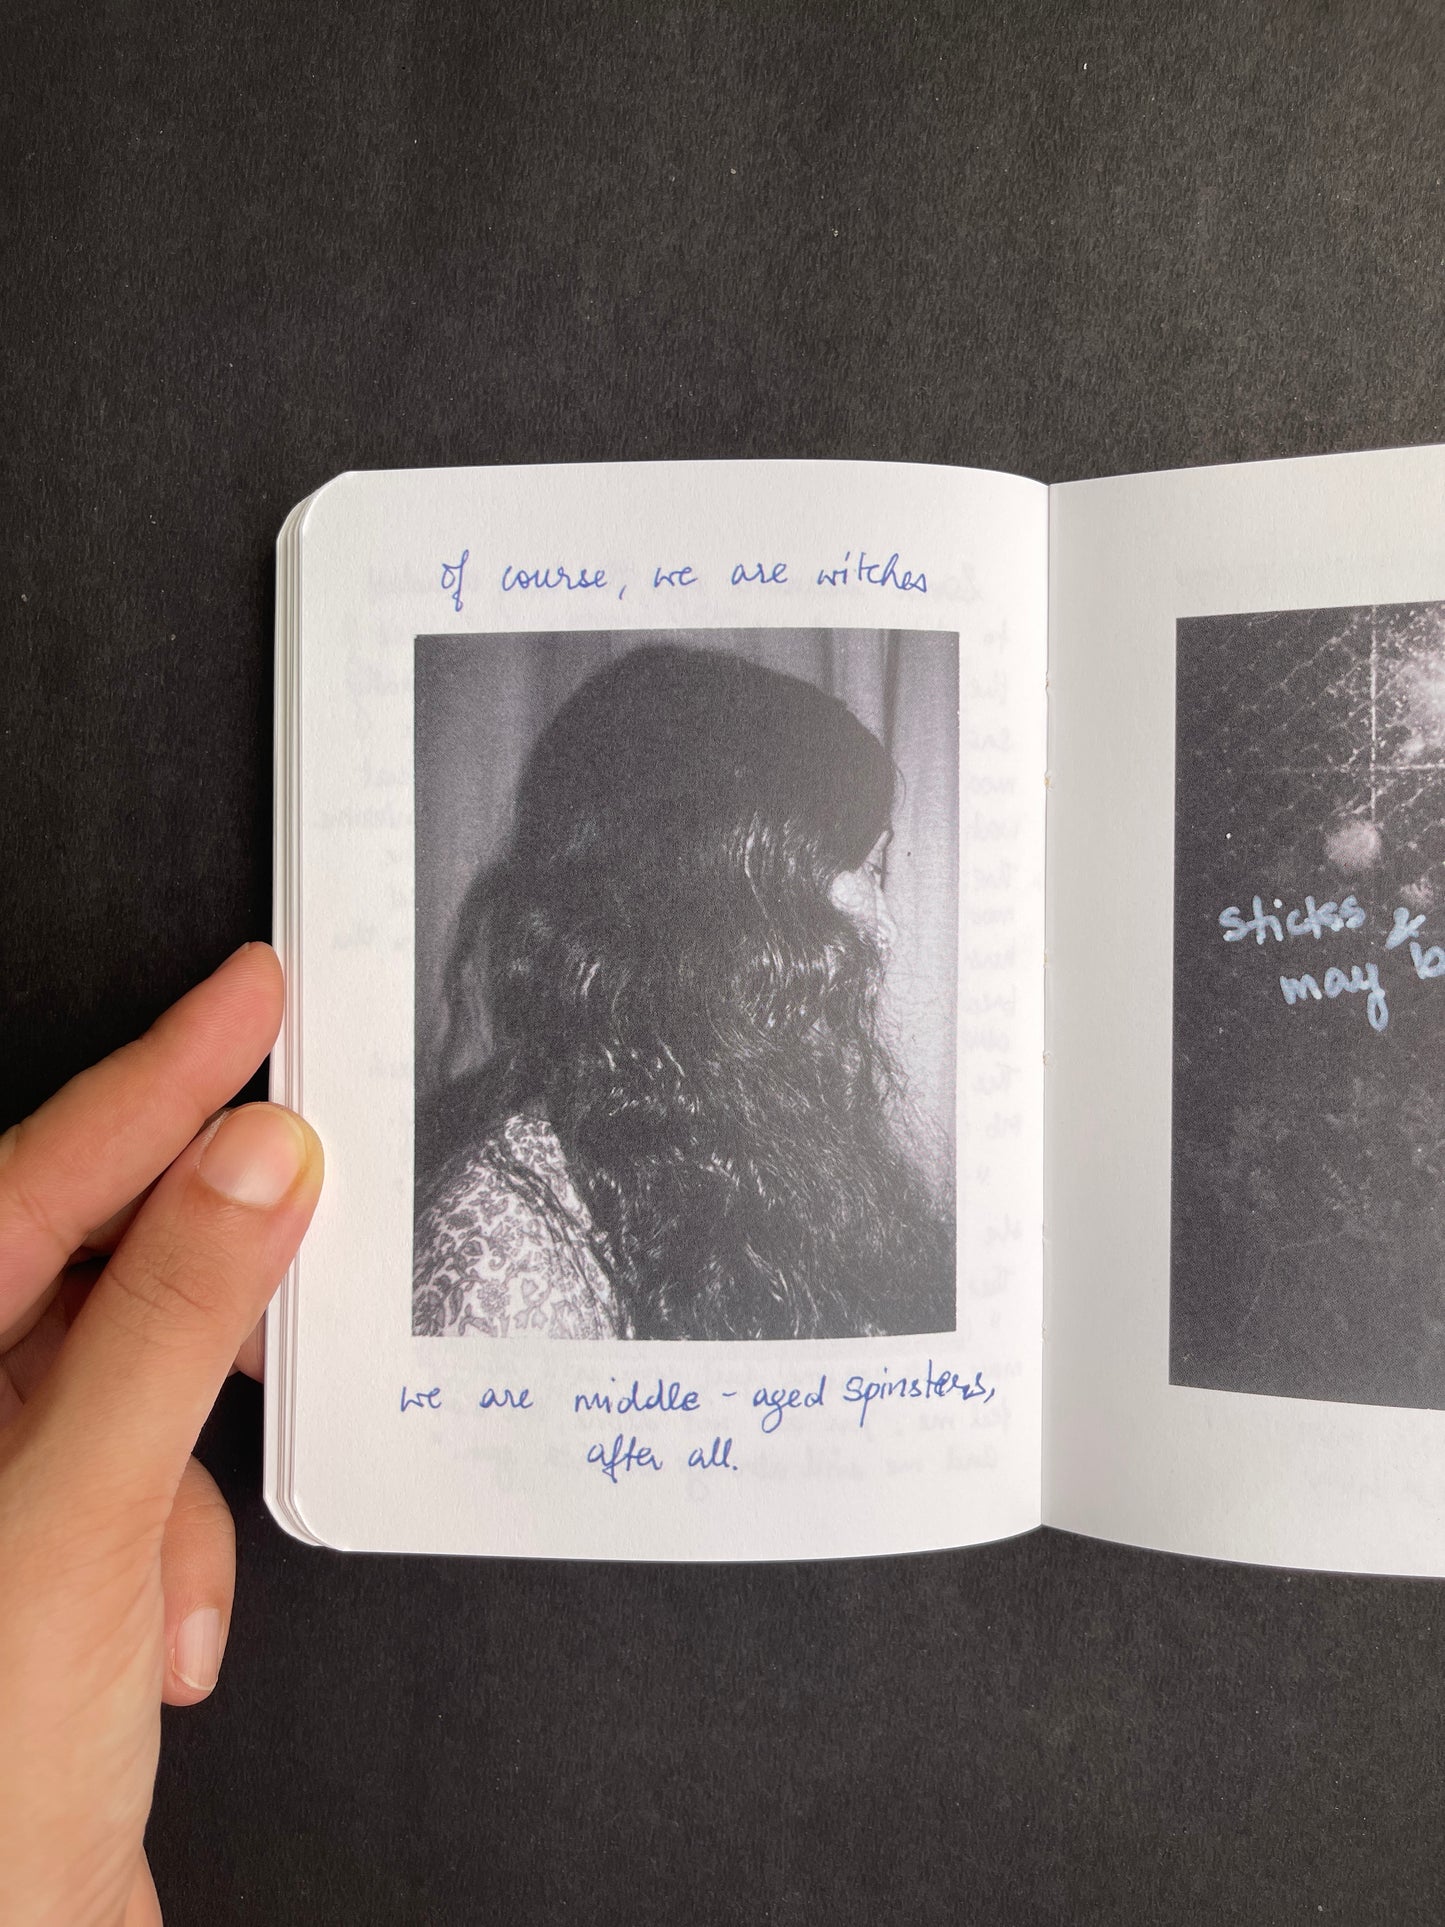 of course, we are witches
we are middle-aged spinsters,
after all.
stickss &
may